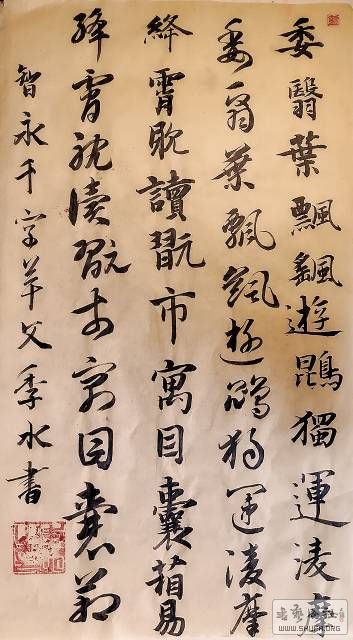 委翳葉飄颻遊鵾獨運淩摩
委翳葉飄颻遊鵾獨運淩摩
絳霄耽讀翫市寓目囊箱易
絳霄耽讀翫市寓目囊箱
智永千字草父季水書
WWW.SHUFA.ORG